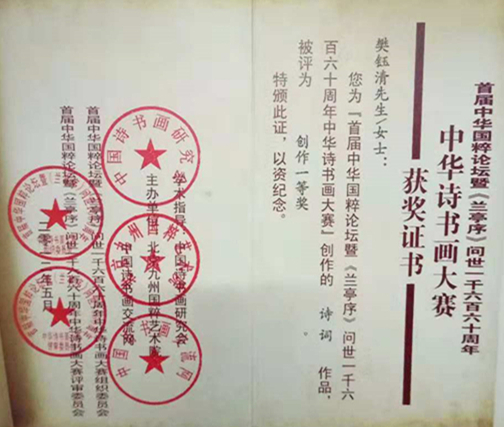 首届中华国粹论坛暨《兰亭序》问世一千六百六十周年
中华诗书画大赛
获奖证书
樊鈺清先生/女士：
您为『首届中华国粹论坛暨《兰亭序》问世一千六
百六十周年中华诗书画大赛』创作的 诗词 作品，
被评为 创作一等奖
特颁此证，以资纪念。
学术指导：中国诗书画研究会
主办单位：北京九州国粹艺术院
中国诗书画交流网
首届中华国粹论坛暨《兰亭序》问世一千六百六十周年中华诗书画大赛组织委员会
首届中华国粹论坛暨《兰亭序》问世一千六百六十周年中华诗书画大赛评审委员会
年五月
中国诗书画研究